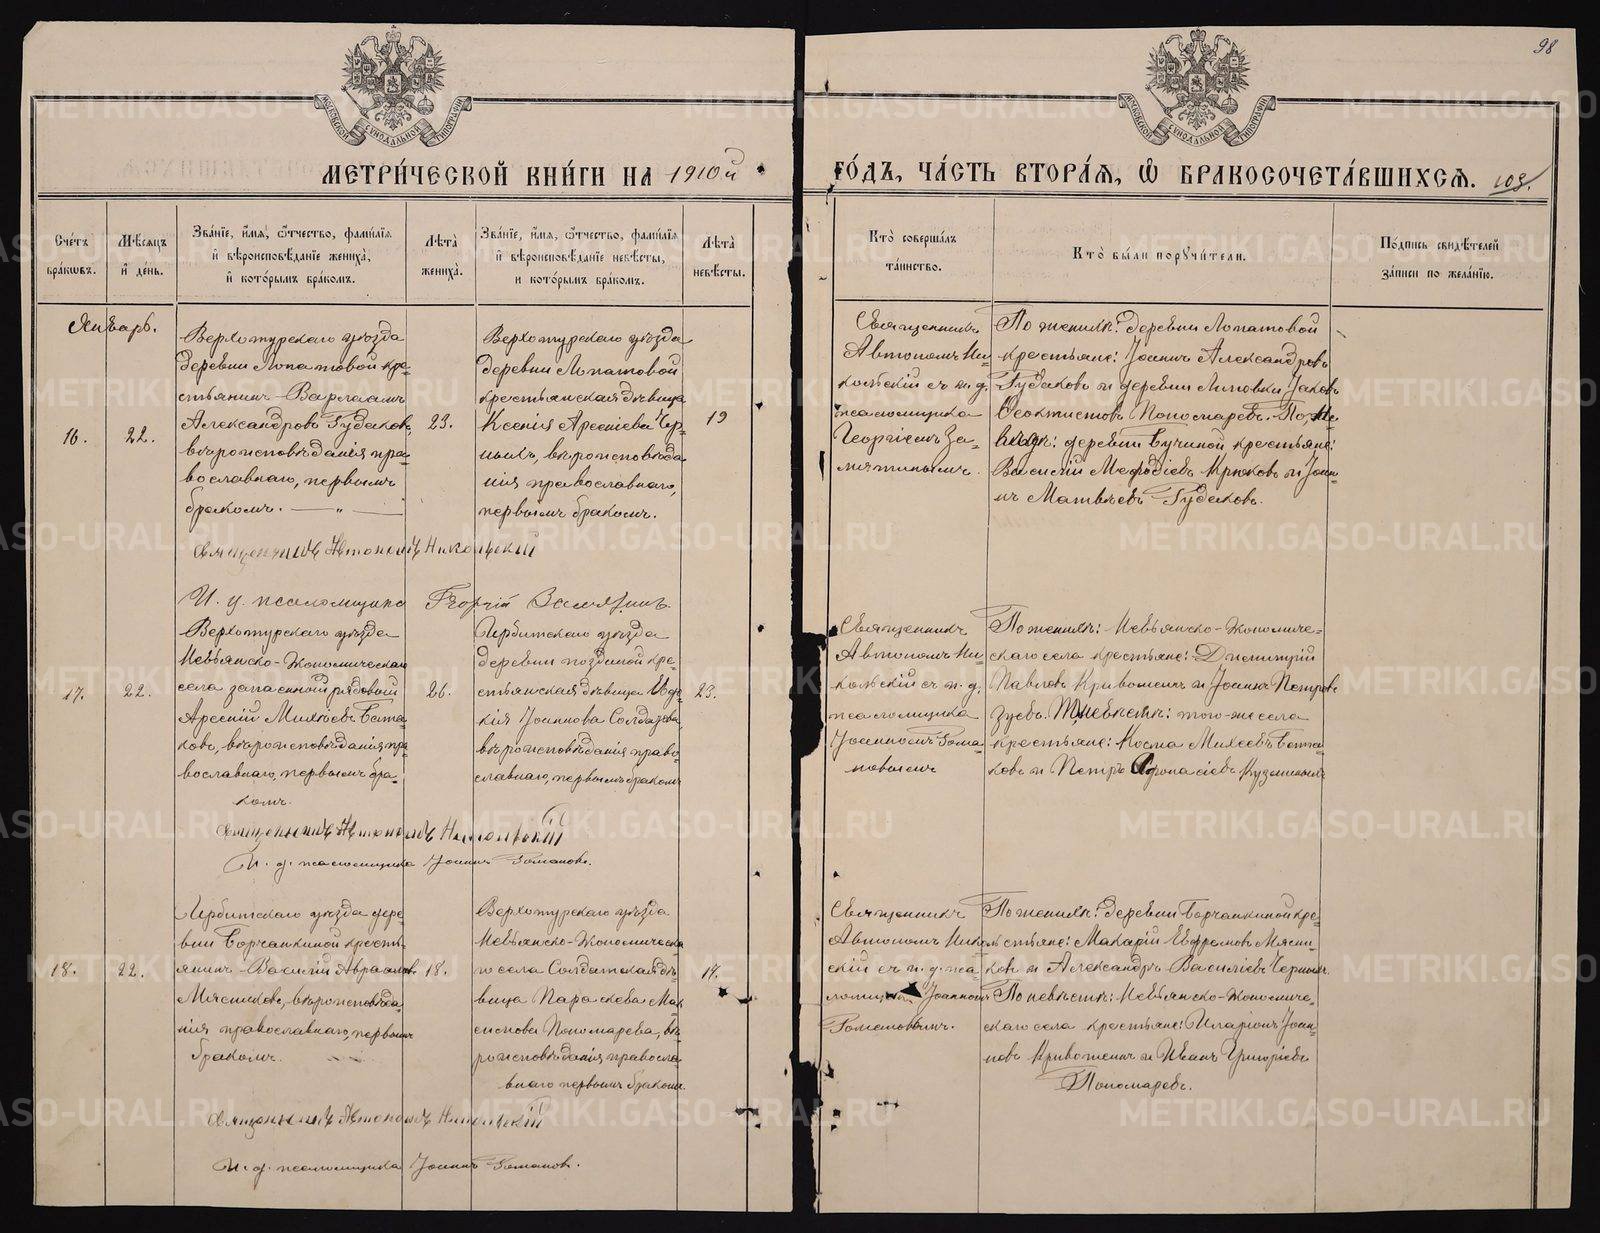 98
МОСКОВСКОЙ СѴНОДАЛЬНОЙ ТИПОГРАФІИ
МОСКОВСКОЙ СѴНОДАЛЬНОЙ ТИПОГРАФІИ
МЕТРИ́ЧЕСКОЙ КНИ́ГИ НА 1910й
ГО́ДЪ, ЧА́СТЬ ВТОРА́Я, Ѿ БРАКОСОЧЕТА́ВШИХСЯ. 103.
Сче́тъ
бра́ковъ.
Мѣ́сяцъ
и҆ де́нь.
Зва́нїе, и҆́мя, ѻ҆́тчество, фами́лїя
и҆ вѣроисповѣ́данїе жениха̀,
и҆ кото́рымъ бра́комъ.
Лѣ́та
жениха̀.
Зва́нїе, и҆́мя, ѻ҆́тчество, фами́лїя
и҆ вѣроисповѣ́данїе невѣ́сты,
и кото́рымъ бра́комъ.
Лѣ́та
невѣ́сты.
Кто̀ соверша́лъ
та́инство.
Кто̀ бы́ли порꙋчи́тели.
По́дпись свидѣ́телей
за́писи по жела́нїю.
Январь.
16.
22.
Верхотурскаго уѣзда
деревни Лопатовой кре-
стьянинъ Варлаамъ
Александровъ Гудаковъ,
вѣроисповѣданія пра-
вославнаго, первымъ
бракомъ. — „ —
23.
Верхотурскаго уѣзда
деревни Лопатовой
крестьянская дѣвица
Ксенія Арсеніева Чер-
ныхъ, вѣроисповѣда-
нія православнаго,
первымъ бракомъ.
19
Священникъ
Автономъ Ни-
кольскій съ и. д.
псаломщика
Георгіемъ За-
мятинымъ.
По женихѣ: деревни Лопатовой
крестьяне: Іоаннъ Александровъ
Гудаковъ и деревни Липовки Іаковъ
Ѳеоктистовъ Пономаревъ. По не-
вѣстѣ: деревни Бучиной крестьяне:
Василій Меѳодіевъ Крюковъ и Іоан-
нъ Матвѣевъ Гудаковъ.
Священникъ Автономъ Никольскій
И. д. псаломщика Георгій Замятинъ.
17.
22.
Верхотурскаго уѣзда
Невьянско-Экономическаго
села запасный рядовой
Арсеній Михѣевъ Бата-
ковъ, вѣроисповѣданія пра-
вославнаго, первымъ бра-
комъ.
26.
Ирбитскаго уѣзда
деревни кре-
стьянская дѣвица Евдо-
кія Іоаннова Солдатова,
вѣроисповѣданія право-
славнаго, первымъ бракомъ
23.
Священникъ
Автономъ Ни-
кольскій съ и. д.
псаломщика
Іоанномъ Рома-
новымъ
По женихѣ: Невьянско-Экономиче-
скаго села крестьяне: Димитрій
Павловъ Кривоногихъ и Іоаннъ Петровъ
Зуевъ. По невѣстѣ: того-же села
крестьяне: Косма Михеевъ Бата-
ковъ и Петръ Афонасіевъ Кузьминыхъ
Священникъ Автономъ Никольскій
И. д. псаломщика Іоаннъ Романовъ.
18.
22.
Ирбитскаго уѣзда дере-
вни Борчанкиной кресть-
янинъ Василій Авраамовъ
Мясниковъ, вѣроисповѣда-
нія православнаго, первымъ
бракомъ.
18.
Верхотурскаго уѣзда
Невьянско-Экономическа-
го села Солдатская дѣ-
вица Параскева Мак-
симова Пономарева, вѣ-
роисповѣданія правосла-
внаго первымъ бракомъ.
17.
Священникъ
Автономъ Николь-
скій съ и. д. пса-
ломщика Іоанномъ
Романовымъ.
По женихѣ: деревни Борчанкиной кре-
стьяне: Макарій Ефремовъ Мясни-
ковъ и Александръ Василіевъ Черныхъ.
По невѣстѣ: Невьянско-Экономиче-
скаго села крестьяне: Иларіонъ Іоан-
новъ и Иванъ Григоріевъ
Пономаревъ.
Священникъ Автономъ Никольскій
И. д. псаломщика Іоаннъ Романовъ.
METRIKI.GASO-URAL.RU